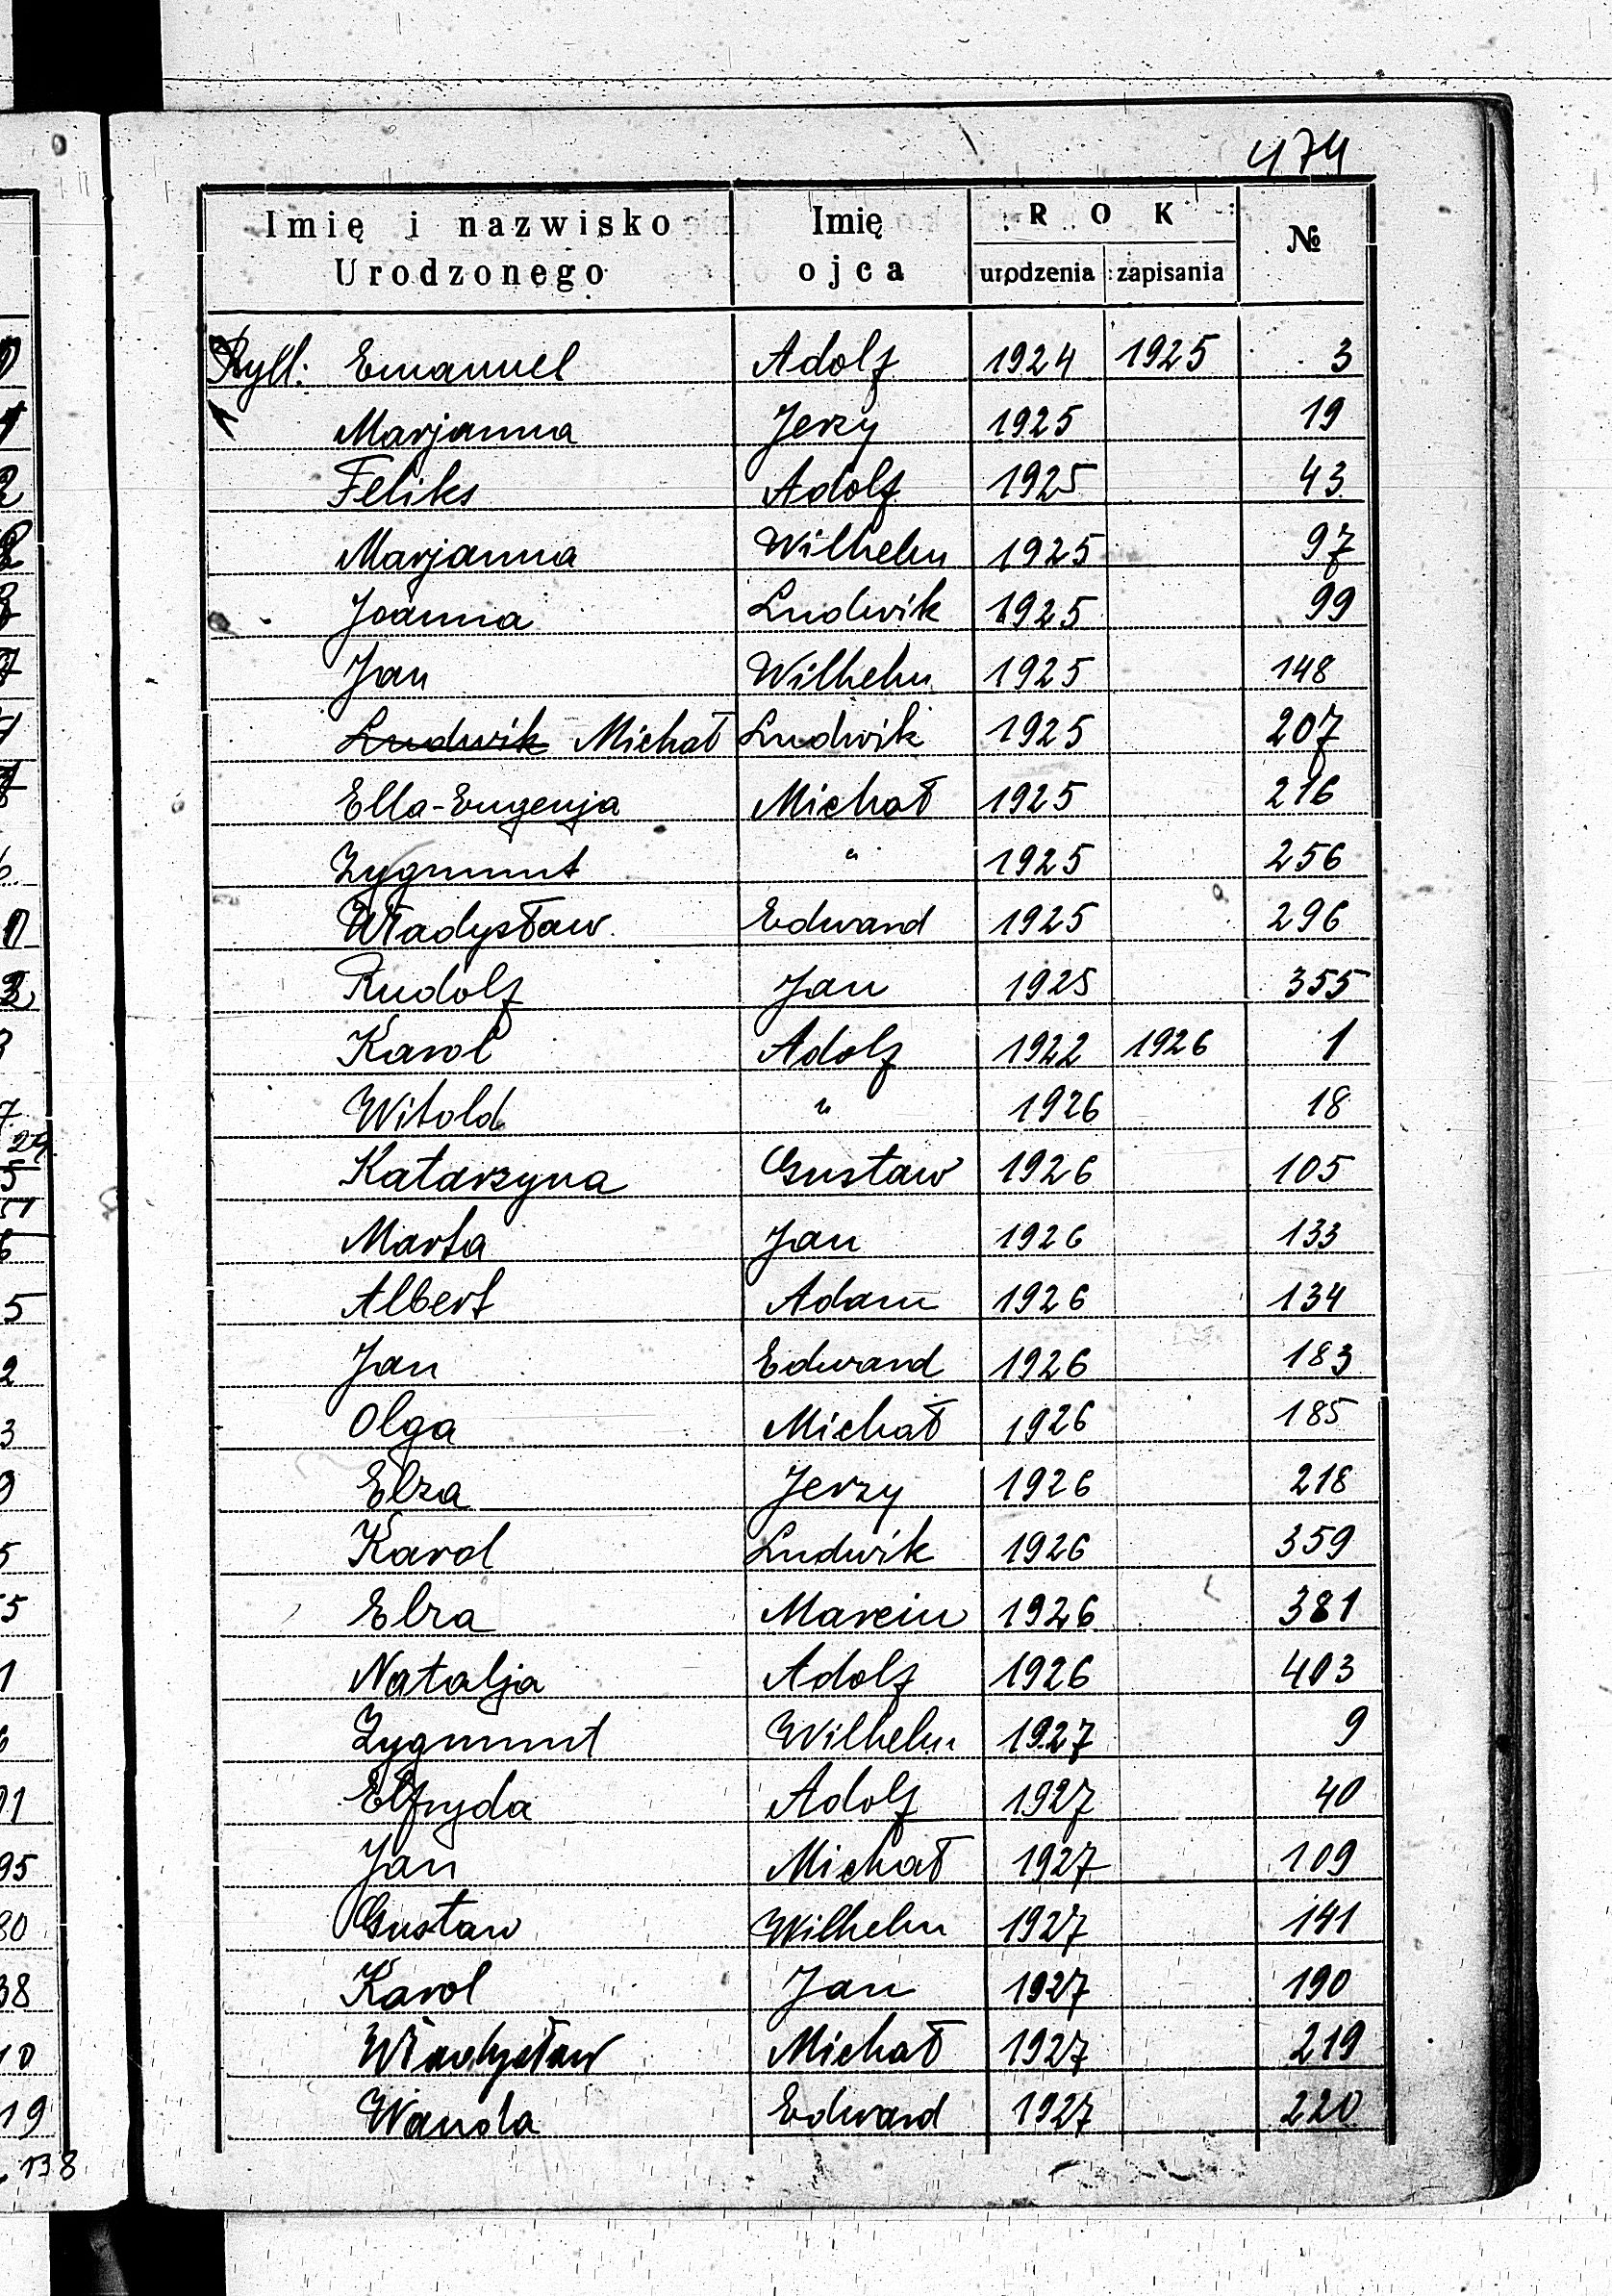 474
Imię i nazwisko Urodzonego | Imię ojca | ROK urodzenia | zapisania | №
Ryll: Emanuel Adolf 1924 1925 3
Marjanna Jerzy 1925 19
Feliks Adolf 1925 43
Marjanna Wilhelm 1925 97
Joanna Ludwik 1925 99
Jan Wilhelm 1925 148
Ludwik Michał Ludwik 1925 207
Ella-Eugenja Michał 1925 216
Zygmunt " 1925 256
Władysław Edward 1925 296
Rudolf Jan 1925 355
Karol Adolf 1922 1926 1
Witold " 1926 18
Katarzyna Gustaw 1926 105
Marta Jan 1926 133
Albert Adam 1926 134
Jan Edward 1926 183
Olga Michał 1926 185
Elza Jerzy 1926 218
Karol Ludwik 1926 359
Elza Marcin 1926 381
Natalja Adolf 1926 403
Zygmunt Wilhelm 1927 9
Elfryda Adolf 1927 40
Jan Michał 1927 109
Gustaw Wilhelm 1927 141
Karol Jan 1927 190
Władysław Michał 1927 219
Wanda Edward 1927 220